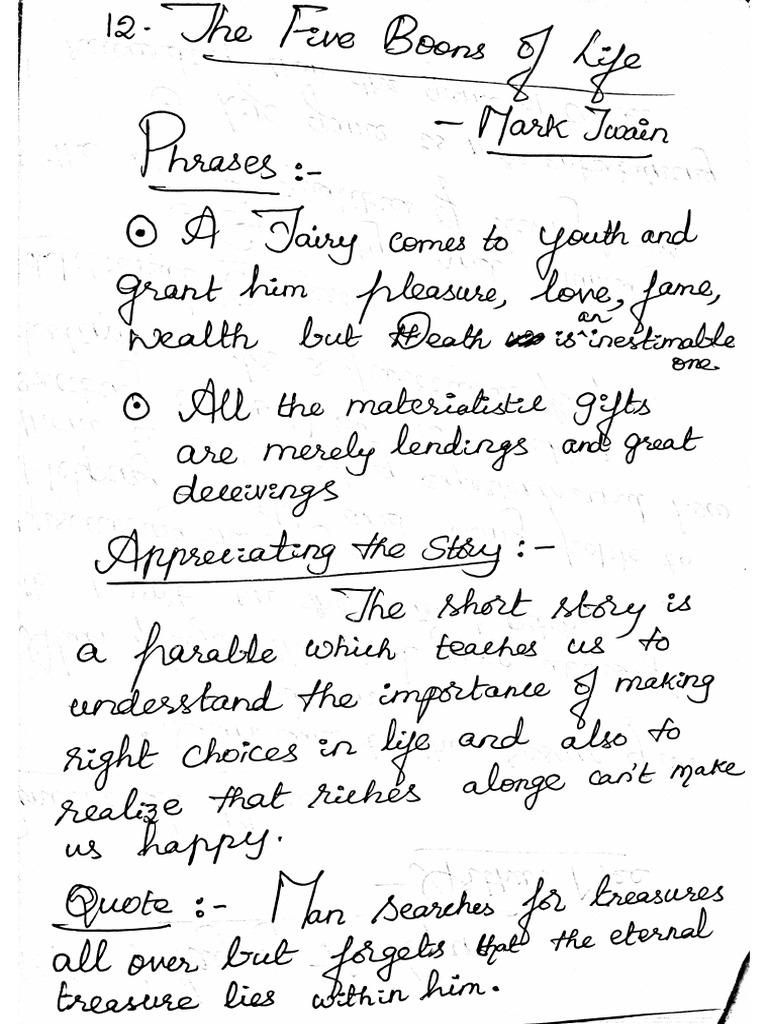 12. The Five Boons of Life
- Mark Twain
Phrases :-
⊙ A Fairy comes to youth and
grant him pleasure, love, fame,
wealth but Death is an inestimable
one
⊙ All the materialistic gifts
are merely lendings and great
deceivings
Appreciating the Story :-
The short story is
a parable which teaches us to
understand the importance of making
right choices in life and also to
realize that riches alonge can't make
us happy.
Quote :- Man searches for treasures
all over but forgets that the eternal
treasure lies within him.